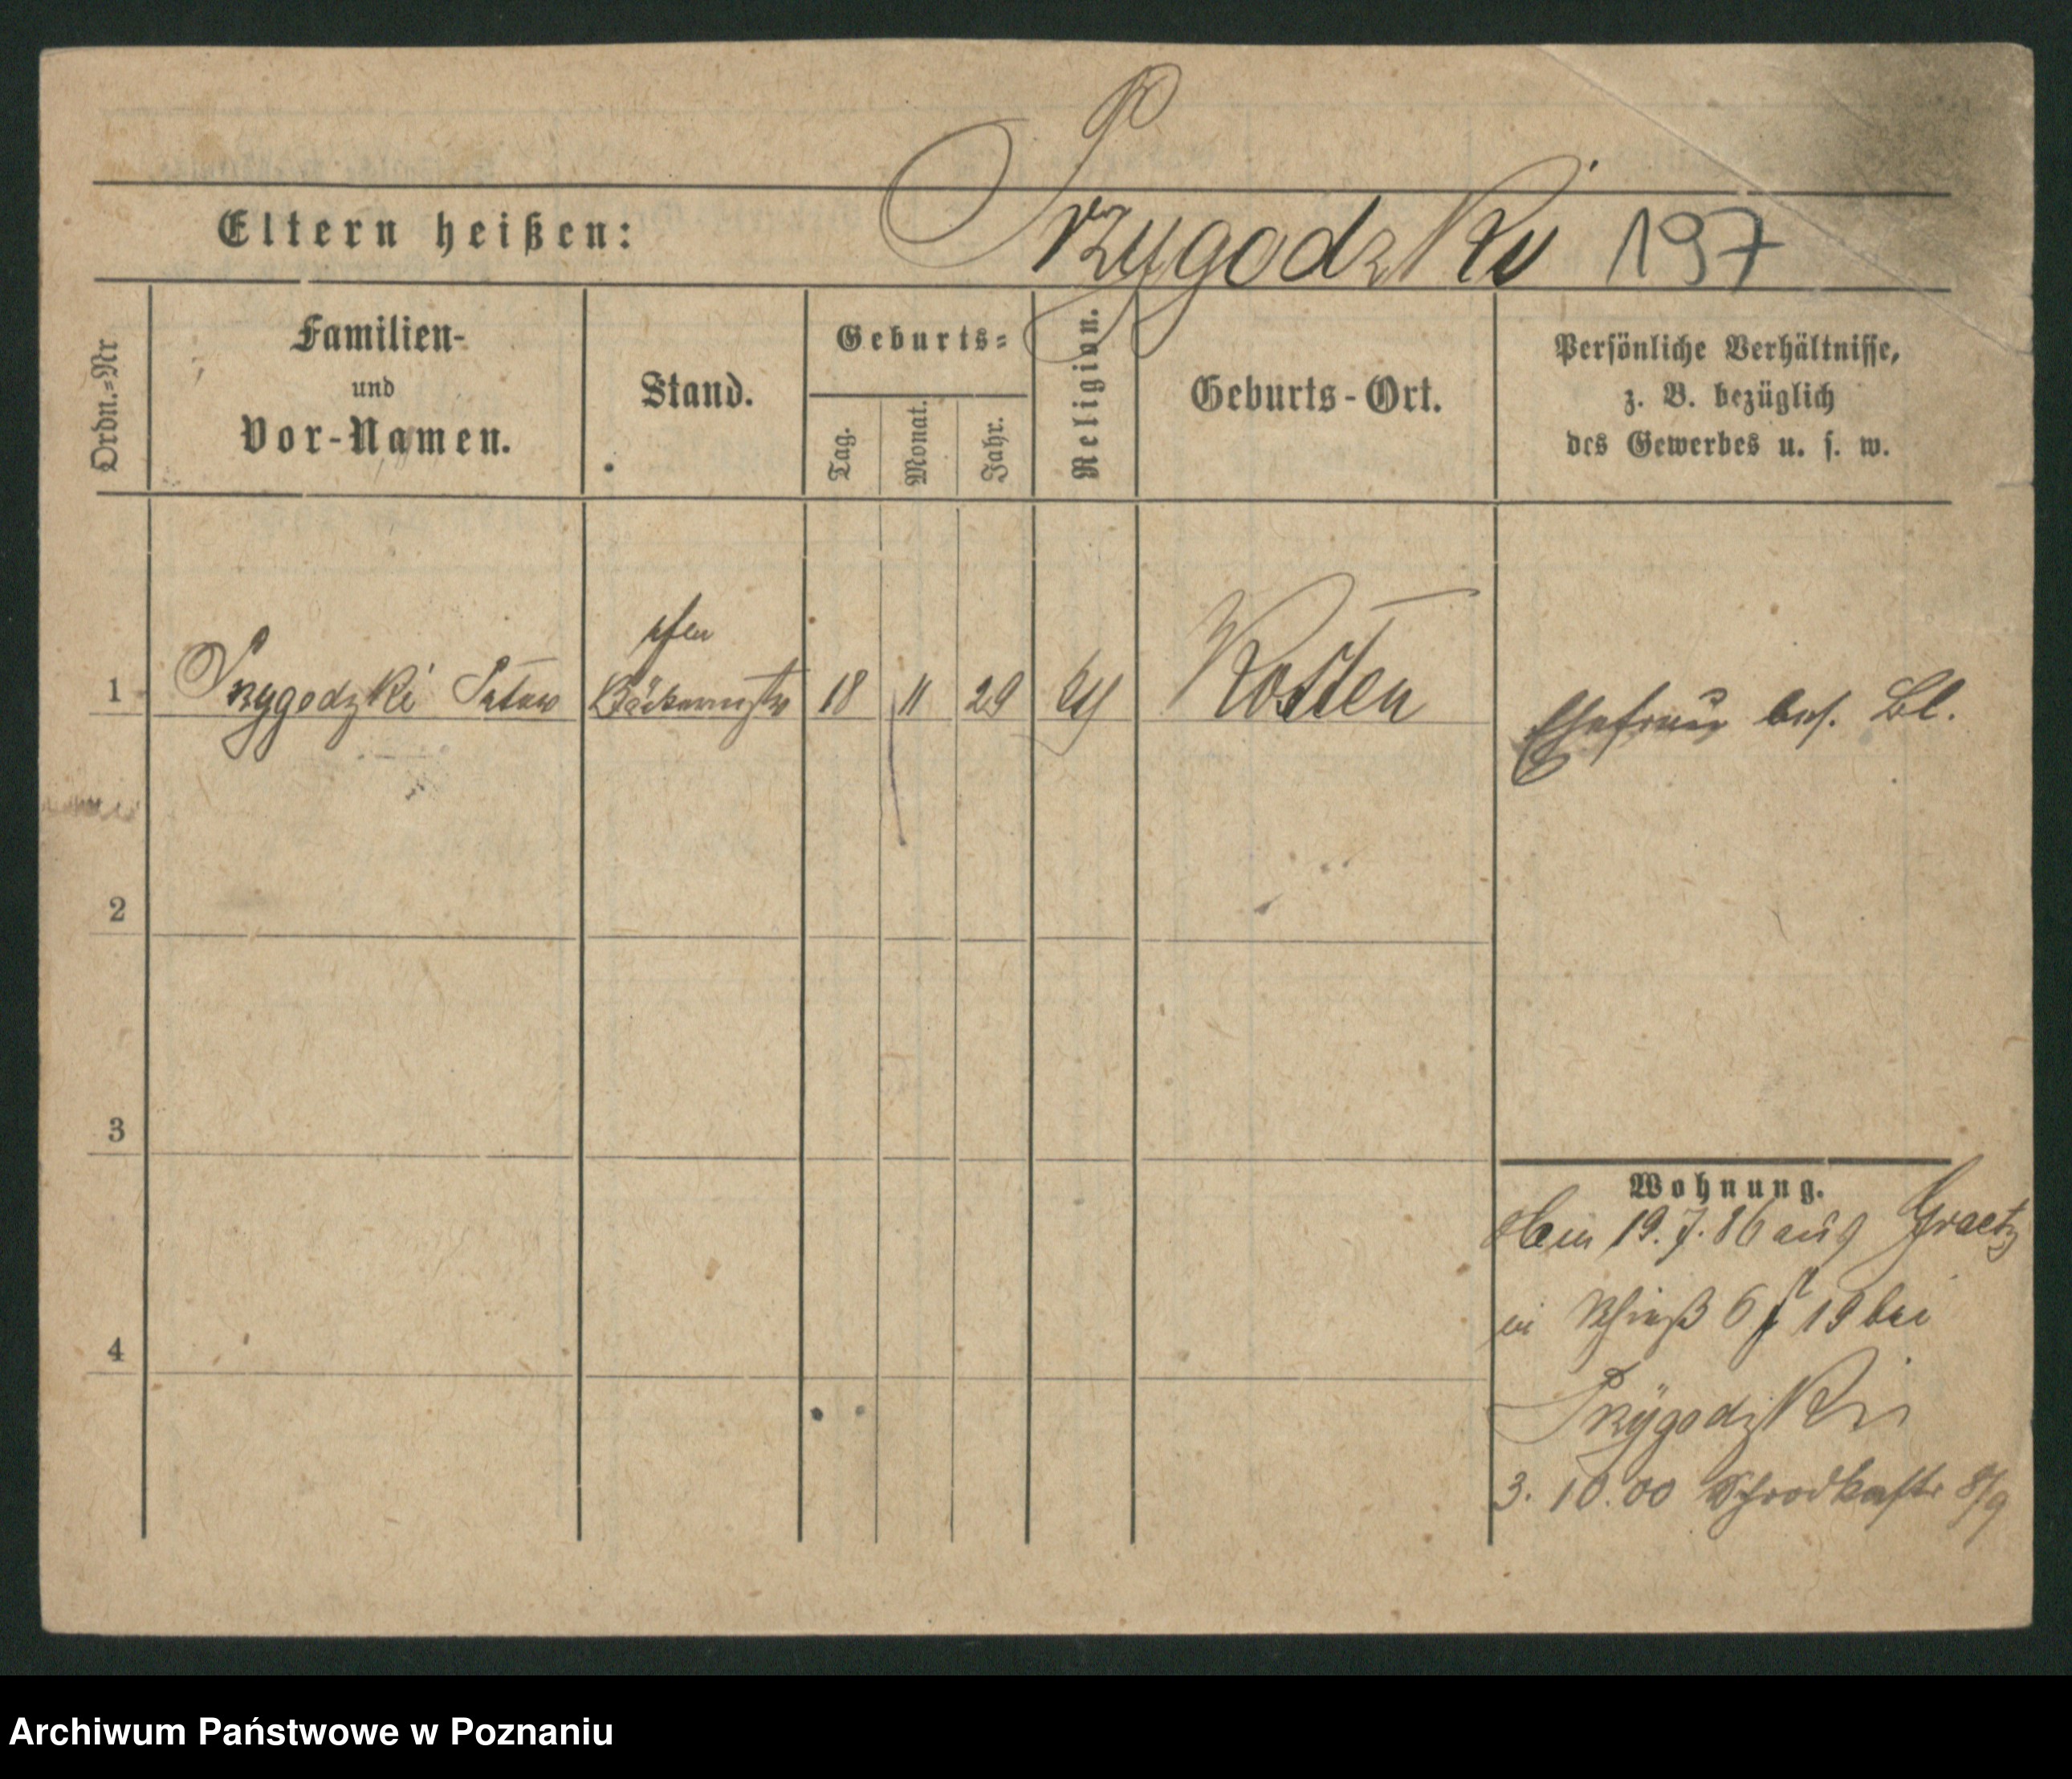 Przygodzki 197
Eltern heißen:
Ordn.-Nr
Familien-
und
Vor-Namen.
Stand.
Geburts-
Tag.
Monat.
Jahr.
Religion.
Geburts-Ort.
Persönliche Verhältnisse,
z. B. bezüglich
des Gewerbes u. s. w.
1 Przygodzki Bäckermstr 18 11 29 Kosten
Ehefrau bes. Bl.
2
3
4
Wohnung.
19.7.86 aus Graetz
in 6 19 bei
Przygodzki
3. 10.00 Schrodkastr 8/9
Archiwum Państwowe w Poznaniu